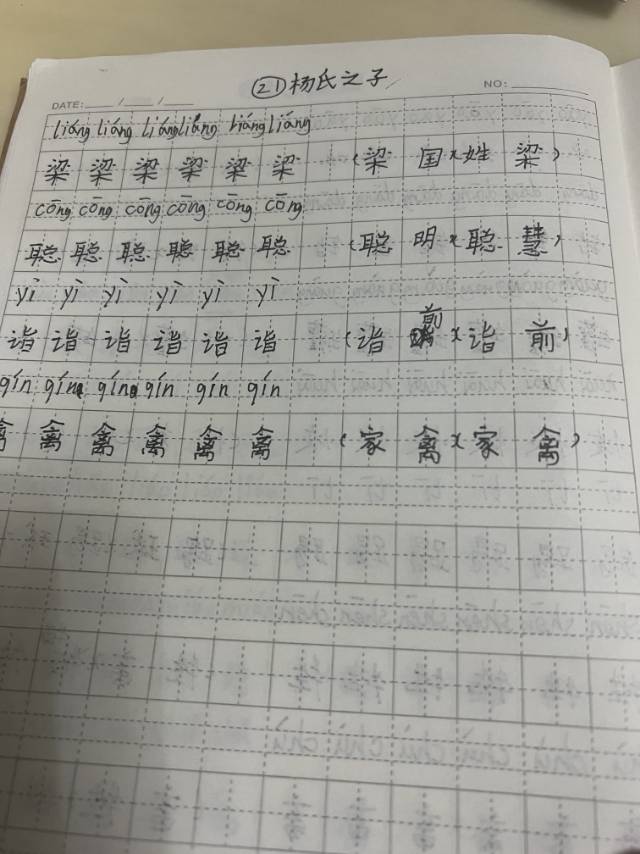 ㉑杨氏之子
DATE: / / NO:
liáng liáng liáng liáng liáng liáng
梁 梁 梁 梁 梁 梁 (梁 国)(姓 梁)
cōng cōng cōng cōng cōng cōng
聪 聪 聪 聪 聪 聪 (聪 明)(聪 慧)
yì yì yì yì yì yì
诣 诣 诣 诣 诣 诣 (诣 前)(诣 前)
qín qín qín qín qín qín
禽 禽 禽 禽 禽 禽 (家 禽)(家 禽)